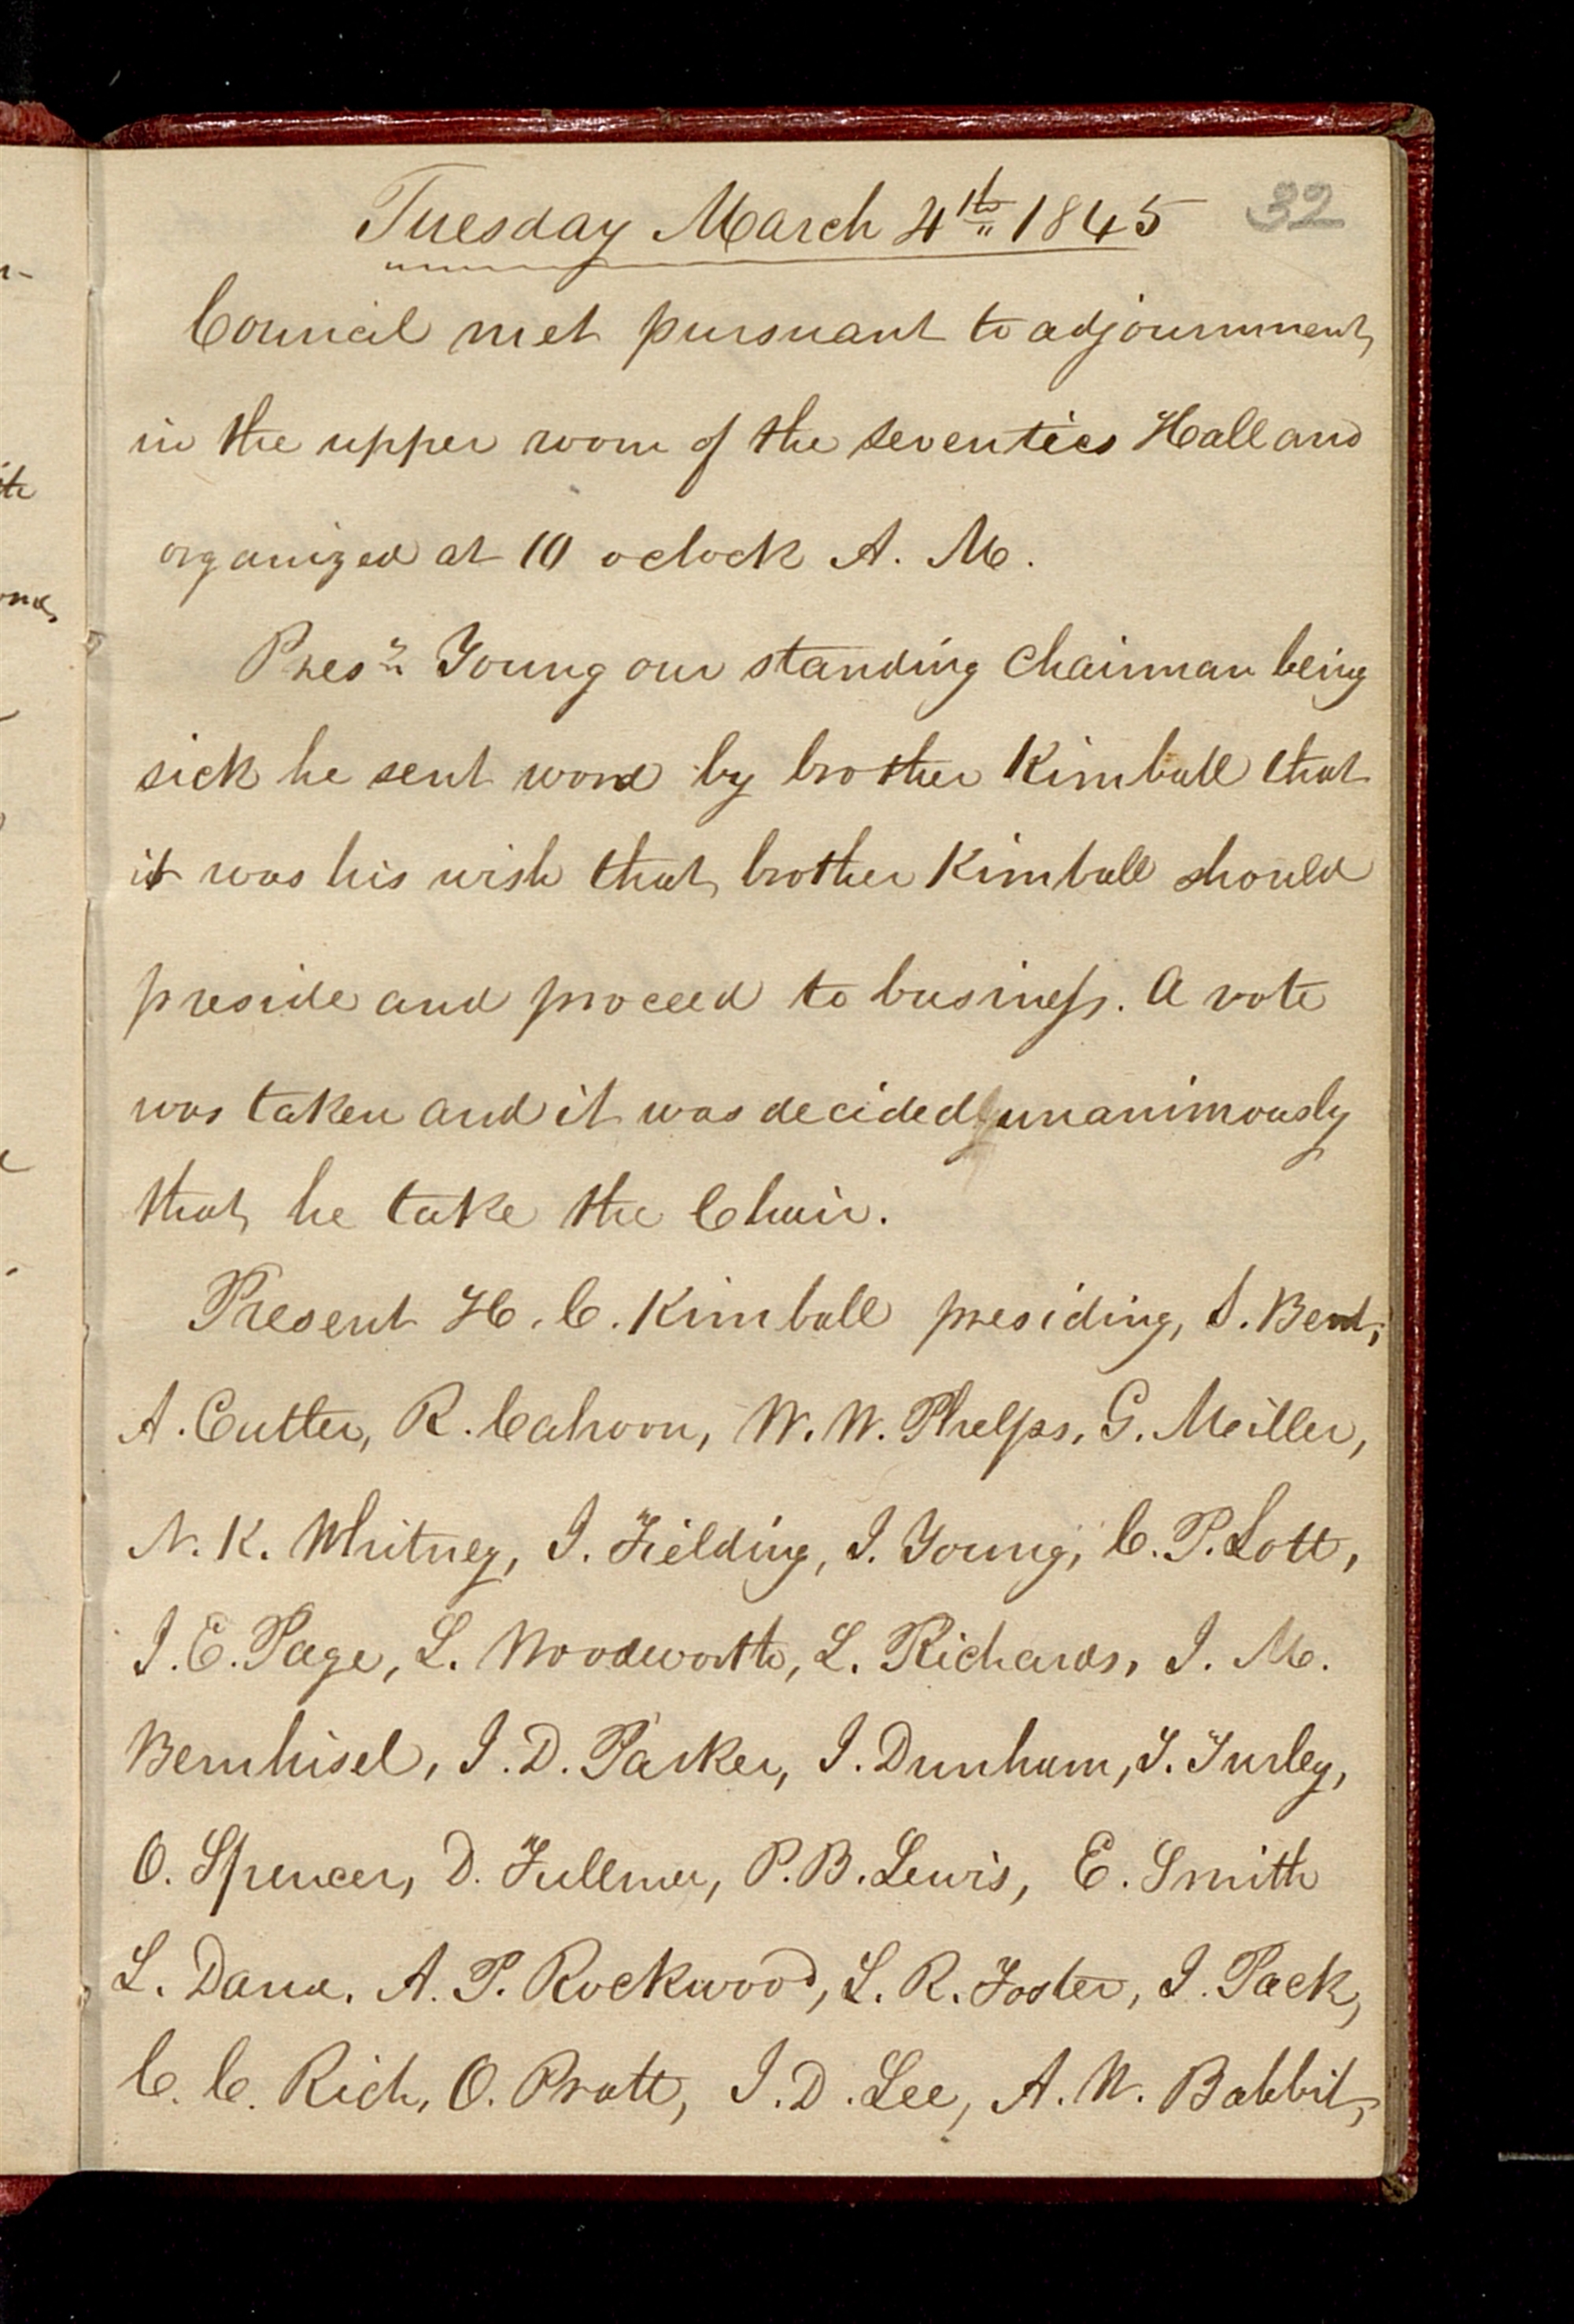 Tuesday March 4th 1845 32
Council met pursuant to adjournment
in the upper room of the seventies Hall and
organized at 10 o clock A. M.
Pres.t Young our standing Chairman being
sick he sent word by brother Kimball that
it was his wish that brother Kimball should
preside and proceed to business. A vote
was taken and it was decided unanimously
that he take the Chair.
Present H. C. Kimball presiding, S. Bent,
A. Cutler, R. Cahoon, W. W. Phelps, G. Miller,
N. K. Whitney, J. Fielding, J. Young, C. P. Lott,
J. E. Page, L. Woodworth, L. Richards, J. M.
Bernhisel, J. D. Parker, J. Dunham, T. Turley,
O. Spencer, D. Fullmer, P. B. Lewis, E. Smith
L. Dana, A. P. Rockwood, L. R. Foster, J. Pack,
C. C. Rich, O. Pratt, J. D. Lee, A. W. Babbit,